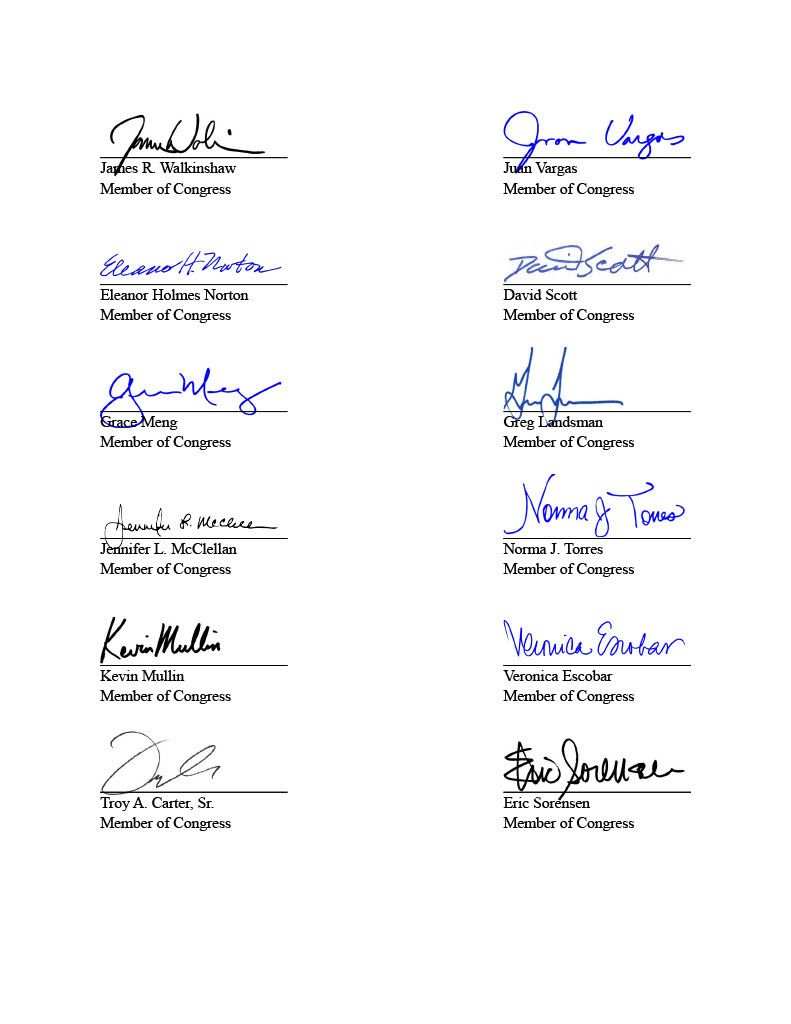 James R. Walkinshaw
Member of Congress
Juan Vargas
Juan Vargas
Member of Congress
Eleanor H. Norton
Eleanor Holmes Norton
Member of Congress
David Scott
David Scott
Member of Congress
Grace Meng
Member of Congress
Greg Landsman
Member of Congress
Jennifer L. McClellan
Member of Congress
Norma J Torres
Norma J. Torres
Member of Congress
Kevin Mullin
Kevin Mullin
Member of Congress
Veronica Escobar
Veronica Escobar
Member of Congress
Troy A. Carter, Sr.
Member of Congress
Eric Sorensen
Eric Sorensen
Member of Congress